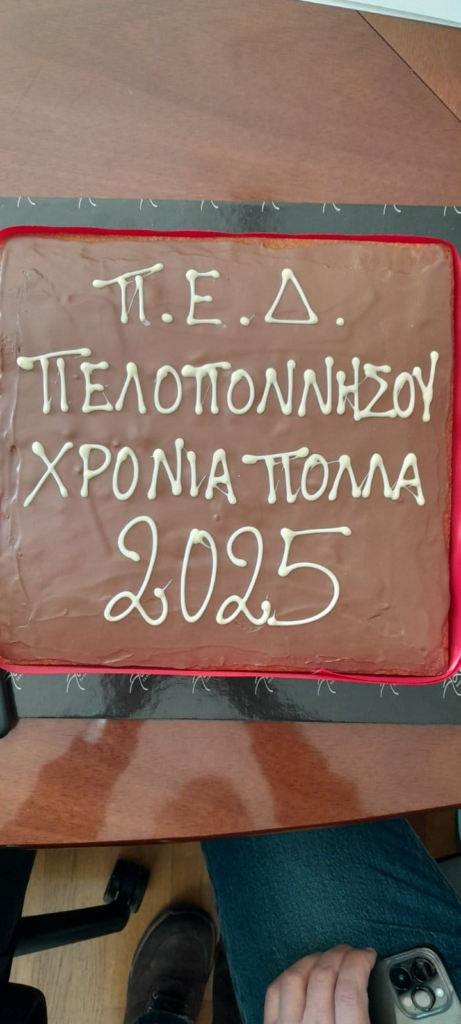 Π.Ε.Δ.
ΠΕΛΟΠΟΝΝΗΣΟΥ
ΧΡΟΝΙΑ ΠΟΛΛΑ
2025